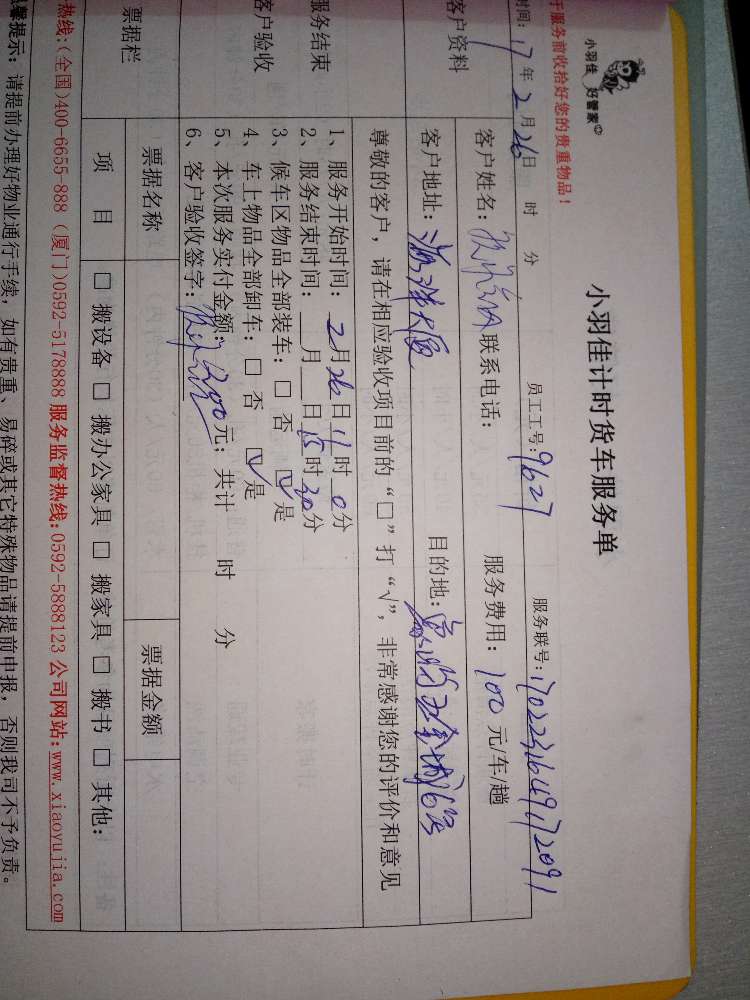 小羽佳 好管家
小羽佳计时货车服务单
于服务前收拾好您的贵重物品！
时间：17年2月26日 时 分 员工工号：9627 服务联号：
客户资料
客户姓名： 联系电话： 服务费用：100元/车/趟
客户地址： 目的地：
尊敬的客户，请在相应验收项目前的“□”打“√”，非常感谢您的评价和意见
服务结束
客户验收
1、服务开始时间：2月26日11时0分
2、服务结束时间：__月__日15时30分
3、候车区物品全部装车：□ 否 ☑ 是
4、车上物品全部卸车：□ 否 ☑ 是
5、本次服务实付金额：200元；共计 时 分
6、客户验收签字：
票据栏 票据名称 票据金额
项 目 □ 搬设备 □ 搬办公家具 □ 搬家具 □ 搬书 □ 其他：
热线：(全国)400-6655-888 (厦门)0592-5178888 服务监督热线：0592-5888123 公司网站：www.xiaoyujia.com
馨提示：请提前办理好物业通行手续，如有贵重、易碎或其它特殊物品请提前申报，否则我司不予负责。